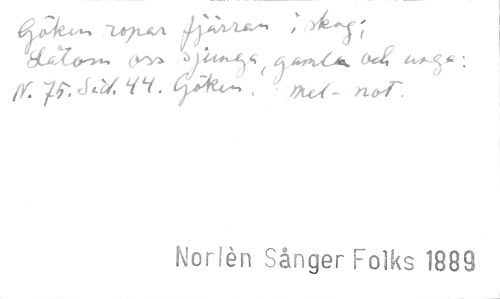 Göken ropar fjärran i skog;
Låtom oss sjunga, gamla och unga:
N. 75. Sid. 44. Göken. mel- not.
Norlèn Sånger Folks 1889